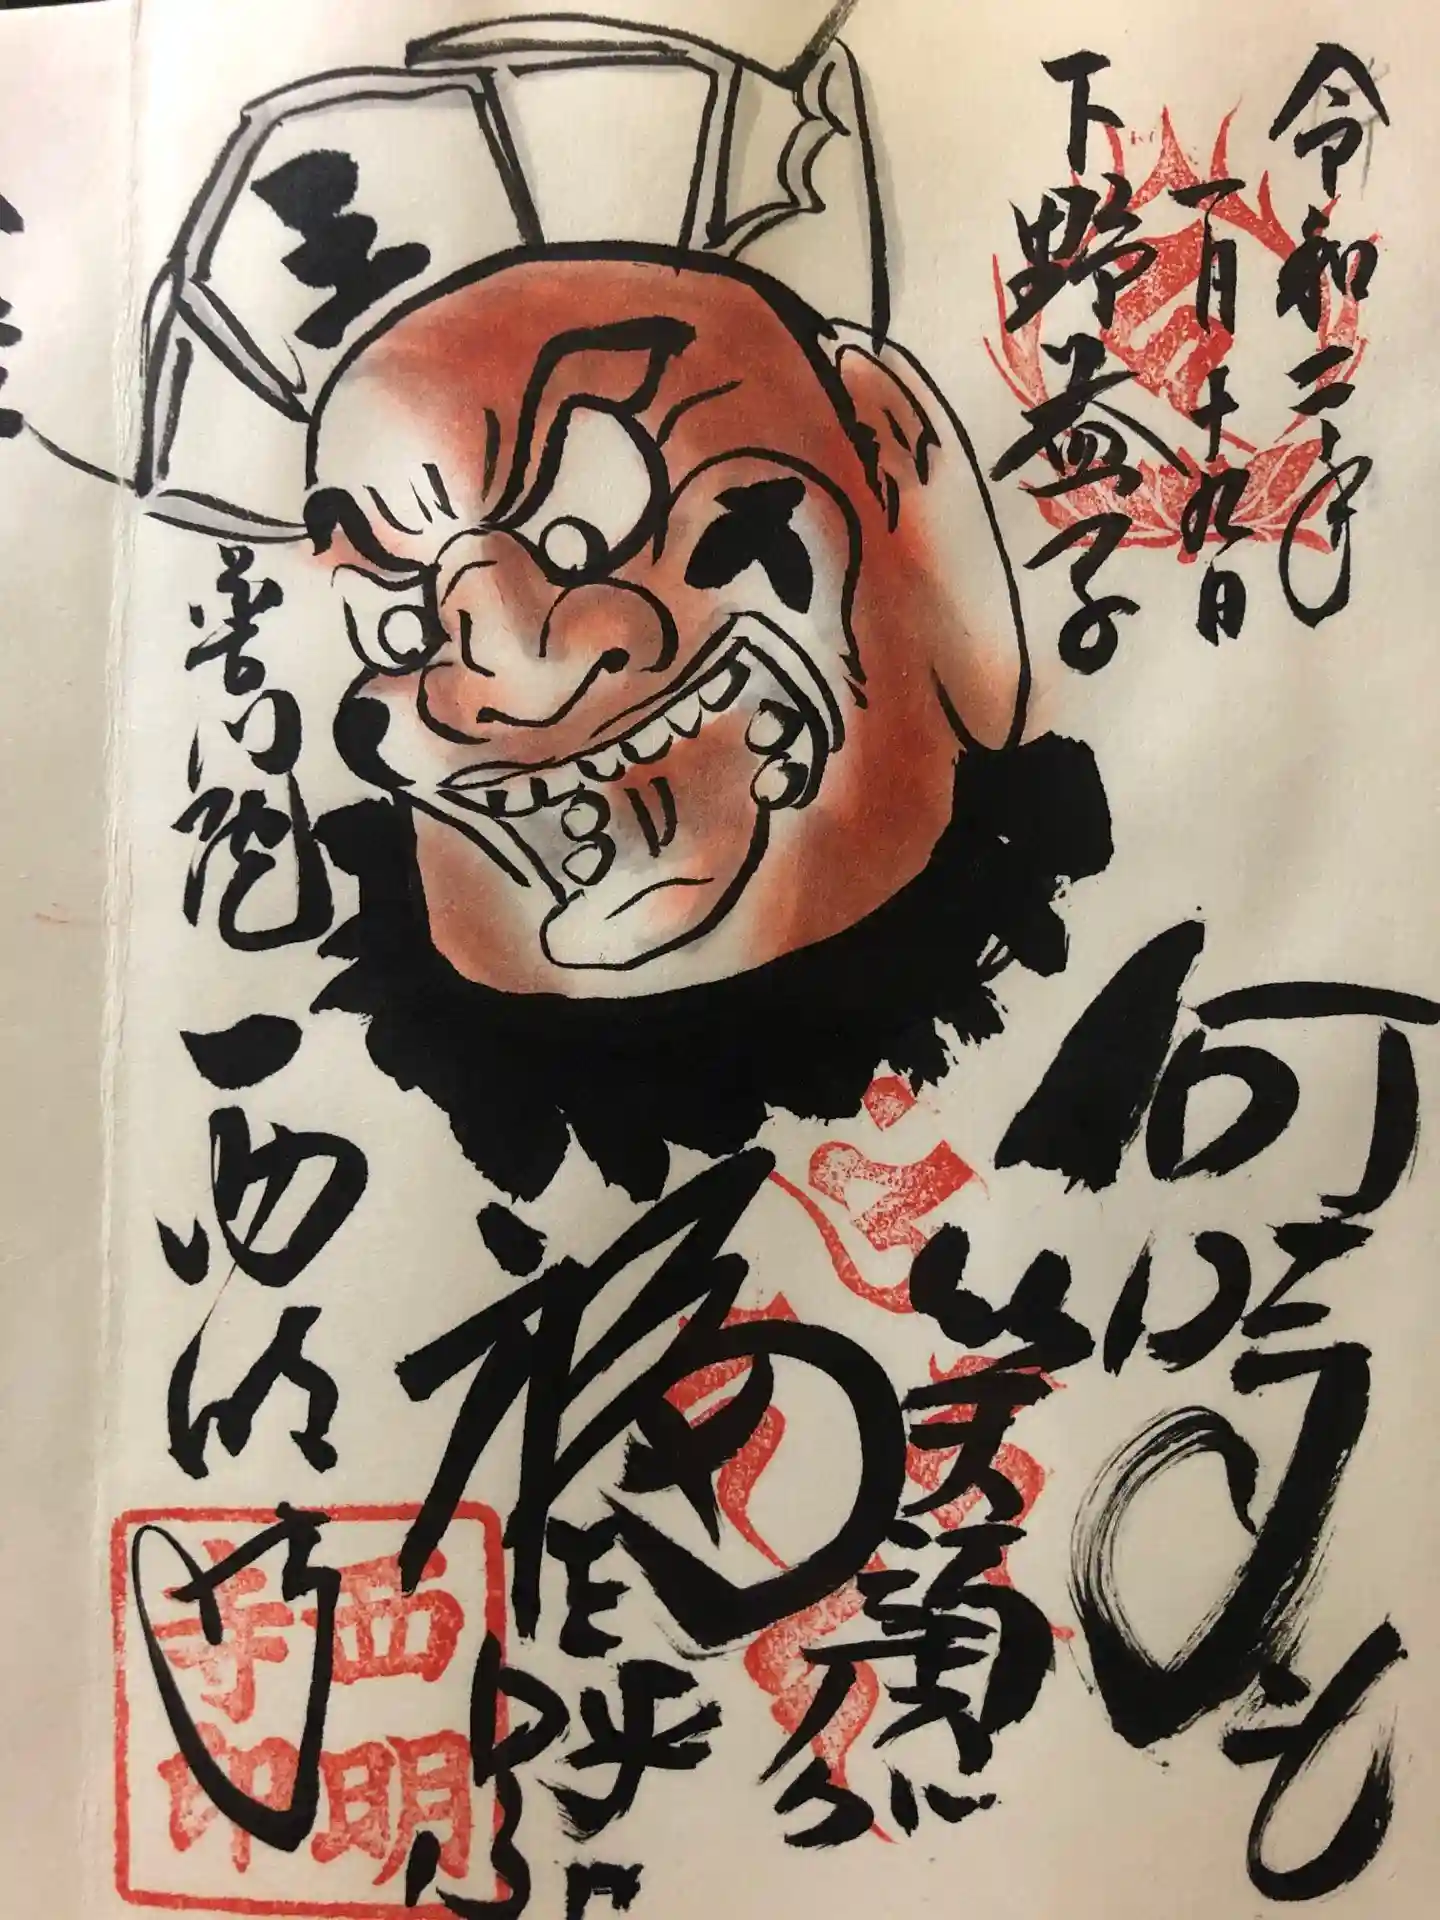 令和二年
一月十九日
下野益子
王
何時も
笑
福を呼
普門院
西明寺
西明
寺印